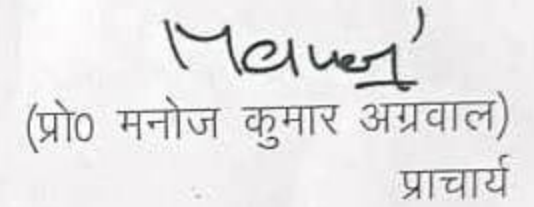 Manoj
(प्रो0 मनोज कुमार अग्रवाल)
प्राचार्य